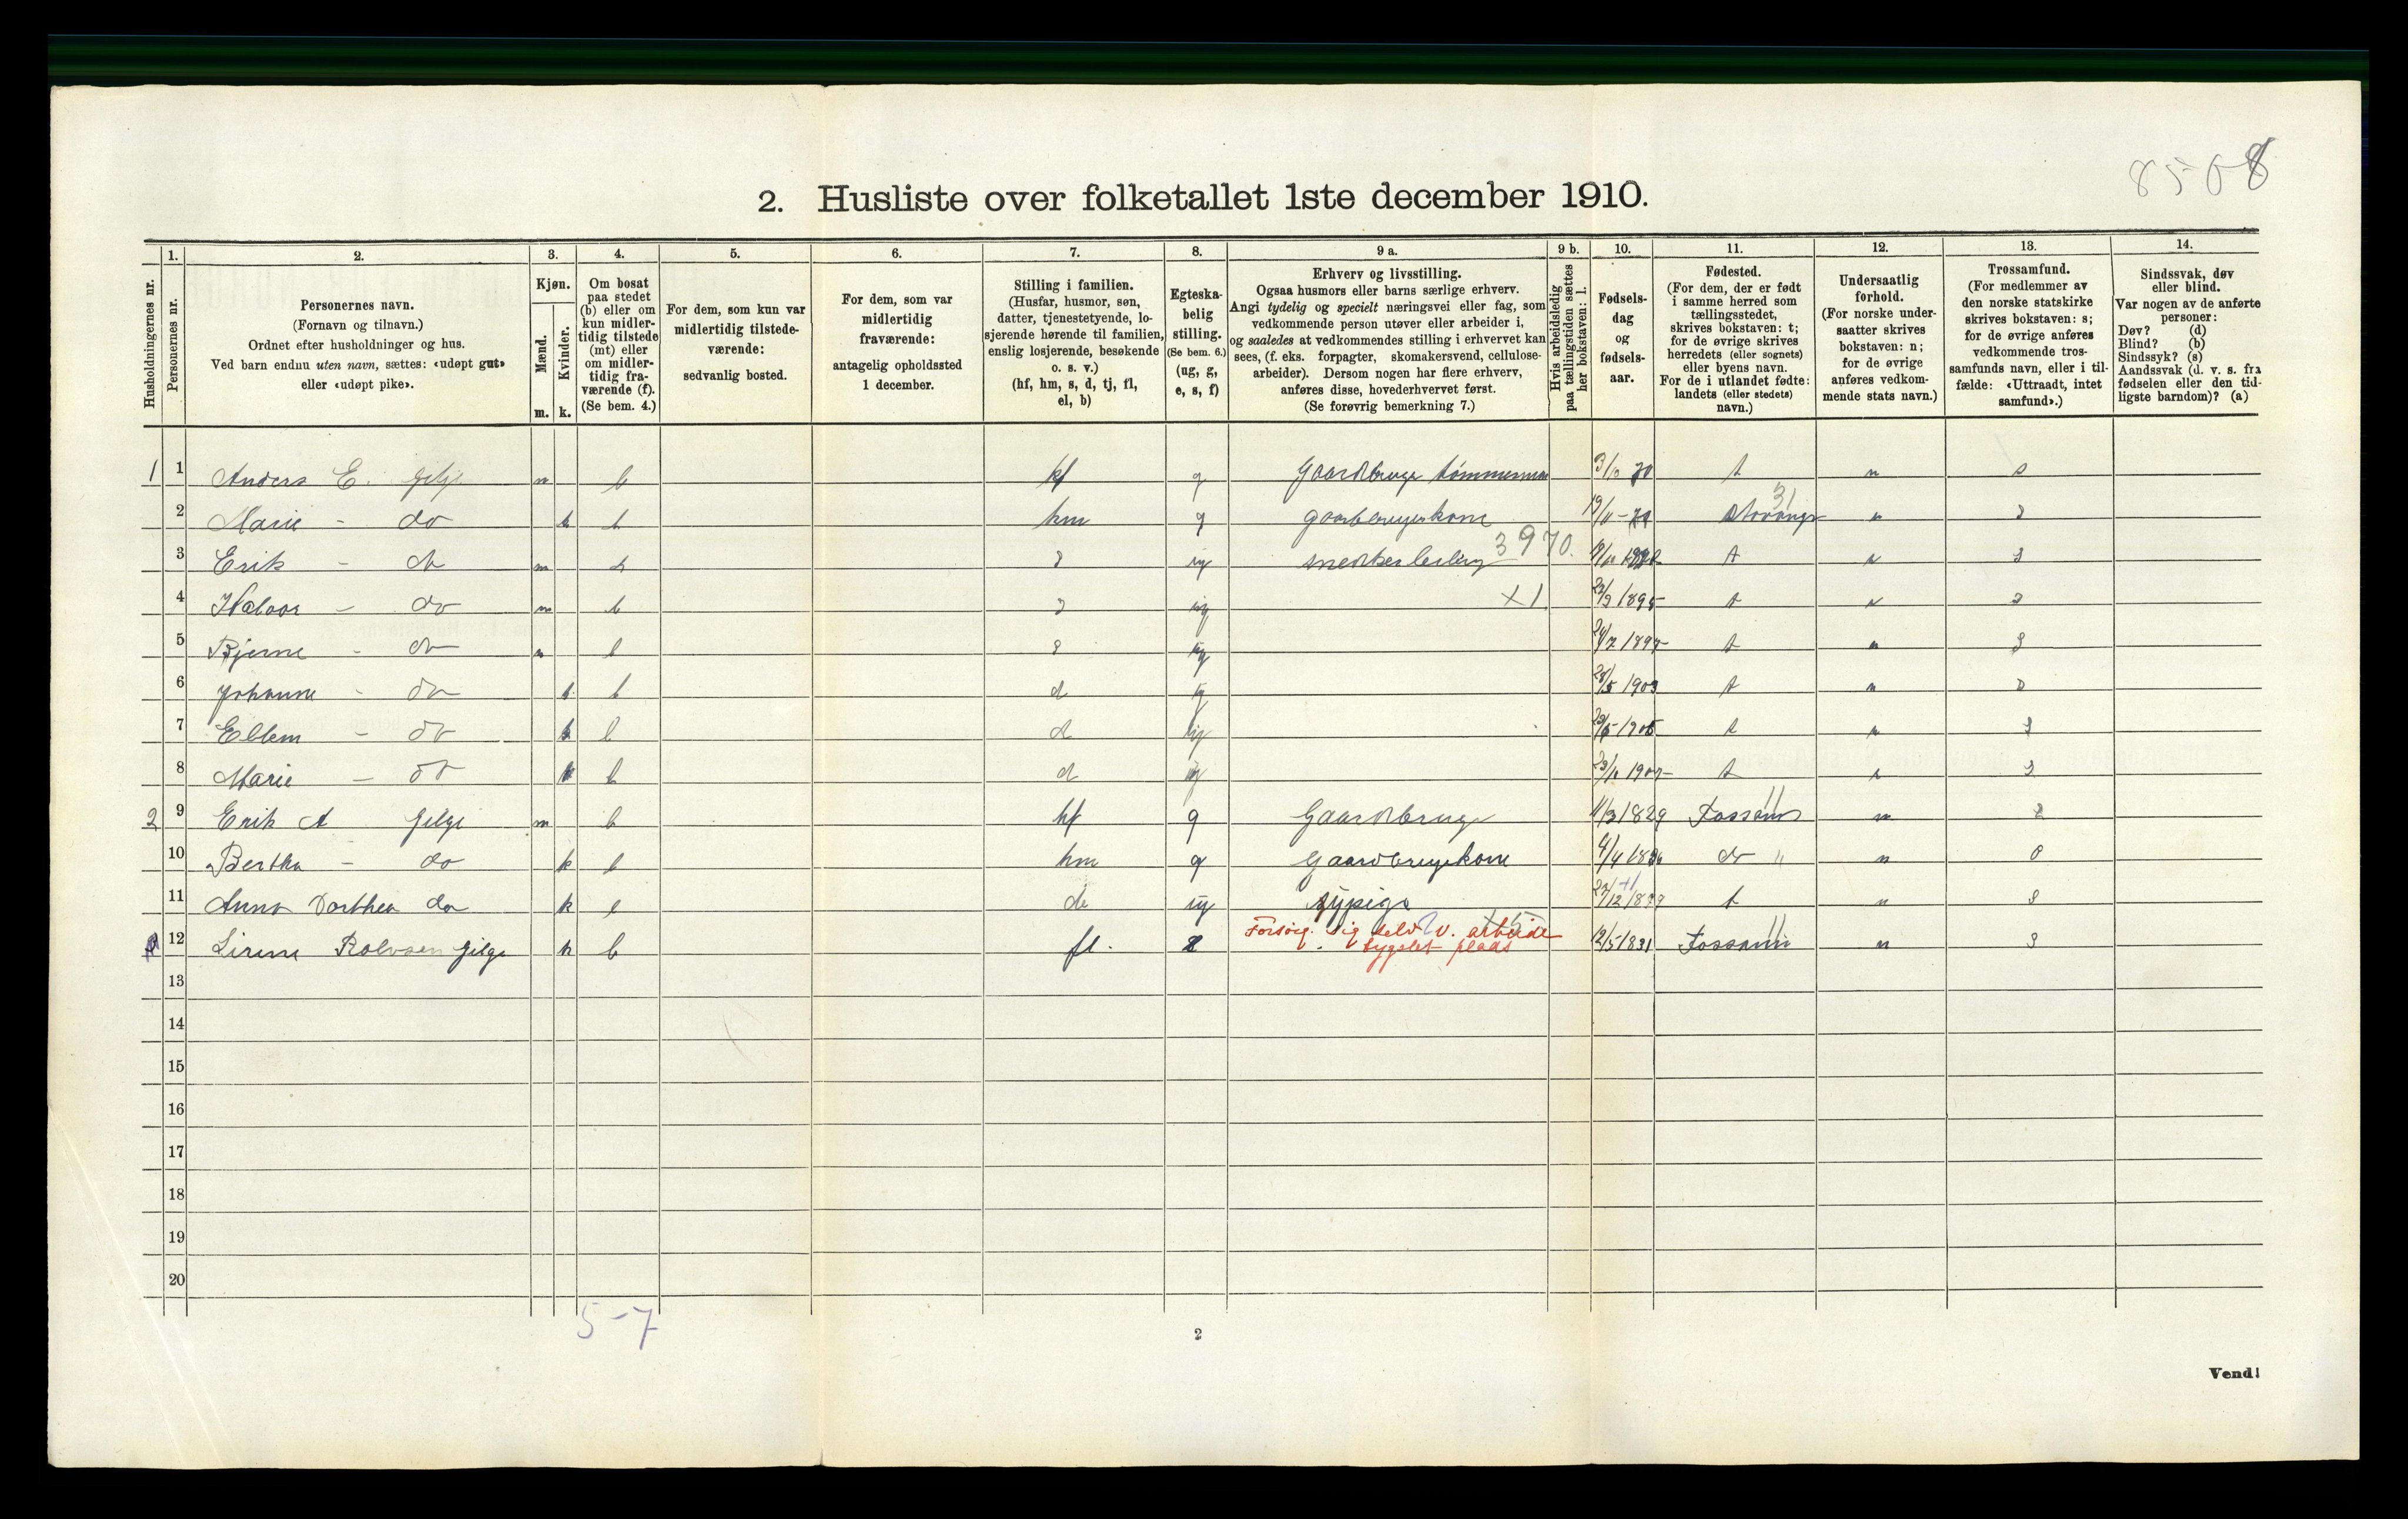 8508
2. Husliste over folketallet 1ste december 1910.
Husholdningernes nr.
1.
Personernes nr.
2.
Personernes navn.
(Fornavn og tilnavn.)
Ordnet efter husholdninger og hus.
Ved barn endnu uten navn, sættes: «udøpt gut»
eller «udøpt pike».
3.
Kjøn.
Mænd.
Kvinder.
m. k.
4.
Om bosat
paa stedet
(b) eller om
kun midler-
tidig tilstede
(mt) eller
om midler-
tidig fra-
værende (f).
(Se bem. 4.)
5.
For dem, som kun var
midlertidig tilstede-
værende:
sedvanlig bosted.
6.
For dem, som var
midlertidig
fraværende:
antagelig opholdssted
1 december.
7.
Stilling i familien.
(Husfar, husmor, søn,
datter, tjenestetyende, lo-
sjerende hørende til familien,
enslig losjerende, besøkende
o. s. v.)
(hf, hm, s, d, tj, fl,
el, b)
8.
Egteska-
belig
stilling.
(Se bem. 6.)
(ug, g,
e, s, f)
9 a.
Erhverv og livsstilling.
Ogsaa husmors eller barns særlige erhverv.
Angi tydelig og specielt næringsvei eller fag, som
vedkommende person utøver eller arbeider i,
og saaledes at vedkommendes stilling i erhvervet kan
sees, (f. eks. forpagter, skomakersvend, cellulose-
arbeider). Dersom nogen har flere erhverv,
anføres disse, hovederhvervet først.
(Se forøvrig bemerkning 7.)
9 b.
Hvis arbeidsledig
paa tællingstiden sættes
her bokstaven: l.
10.
Fødsels-
dag
og
fødsels-
aar.
11.
Fødested.
(For dem, der er født
i samme herred som
tællingsstedet,
skrives bokstaven: t;
for de øvrige skrives
herredets (eller sognets)
eller byens navn.
For de i utlandet fødte:
landets (eller stedets)
navn.)
12.
Undersaatlig
forhold.
(For norske under-
saatter skrives
bokstaven: n;
for de øvrige
anføres vedkom-
mende stats navn.)
13.
Trossamfund.
(For medlemmer av
den norske statskirke
skrives bokstaven: s;
for de øvrige anføres
vedkommende tros-
samfunds navn, eller i til-
fælde: «Uttraadt, intet
samfund».)
14.
Sindssvak, døv
eller blind.
Var nogen av de anførte
personer:
Døv? (d)
Blind? (b)
Sindssyk? (s)
Aandssvak (d. v. s. fra
fødselen eller den tid-
ligste barndom)? (a)
1 1 Anders E. Gilje m b hf g Gaardbruger 3/10 70 t n s
31
2 Marie - do k b hm g n s
3 Erik - do m b s ug 3970. t n s
4 m b s ug X1 1895 t n s
5 Bjerne - do m b s ug t n s
6 Johanne - do k b d ug 1903 t n s
7 Ellem - do k b d ug t n s
8 Marie - do k b d ug t n s
11
2 9 Erik A Gilje m b hf g Gaardbruger 11/3 1829 Fossan n s
10 Bertha - do k b hm g Gaardbrugerkone do " n s
11 Anna Dorthea do k b d ug sypige t n s
Forsørg. sig selv v. arbeide
11
12 Rolvsen Gilje k b fl. 12/5 1831 Fossan n s
13
14
15
16
17
18
19
20
5-7
2
Vend!